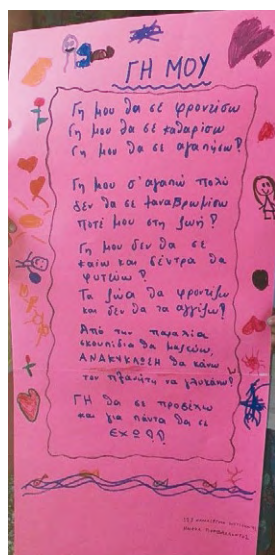 ΓΗ ΜΟΥ
Γη μου θα σε φροντίσω
Γη μου θα σε καθαρίσω
Γη μου θα σε αγαπήσω!
Γη μου σ'αγαπώ πολύ
δεν θα σε ξαναβρωμίσω
ποτέ μου στη ζωή!
Γη μου δεν θα σε
καίω και δέντρα θα
φυτεύω!
Τα ζώα θα φροντίζω
και δεν θα τα αγγίζω!
Από την παραλία
σκουπίδια θα μαζεύω,
ΑΝΑΚΥΚΛΩΣΗ θα κάνω
τον πλανήτη να γλυκάνω!
ΓΗ θα σε προσέχω
και για πάντα θα σε
ΕΧΩ!!